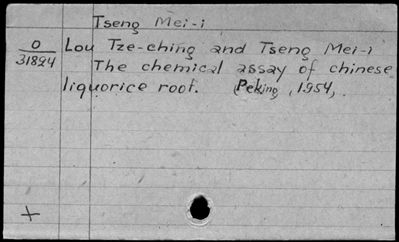 Tseng Mei-i
O
31824
Lou Tze-ching and Tseng Mei-i
The chemical assay of chinese
liquorice root. (Peking, 1954,
+